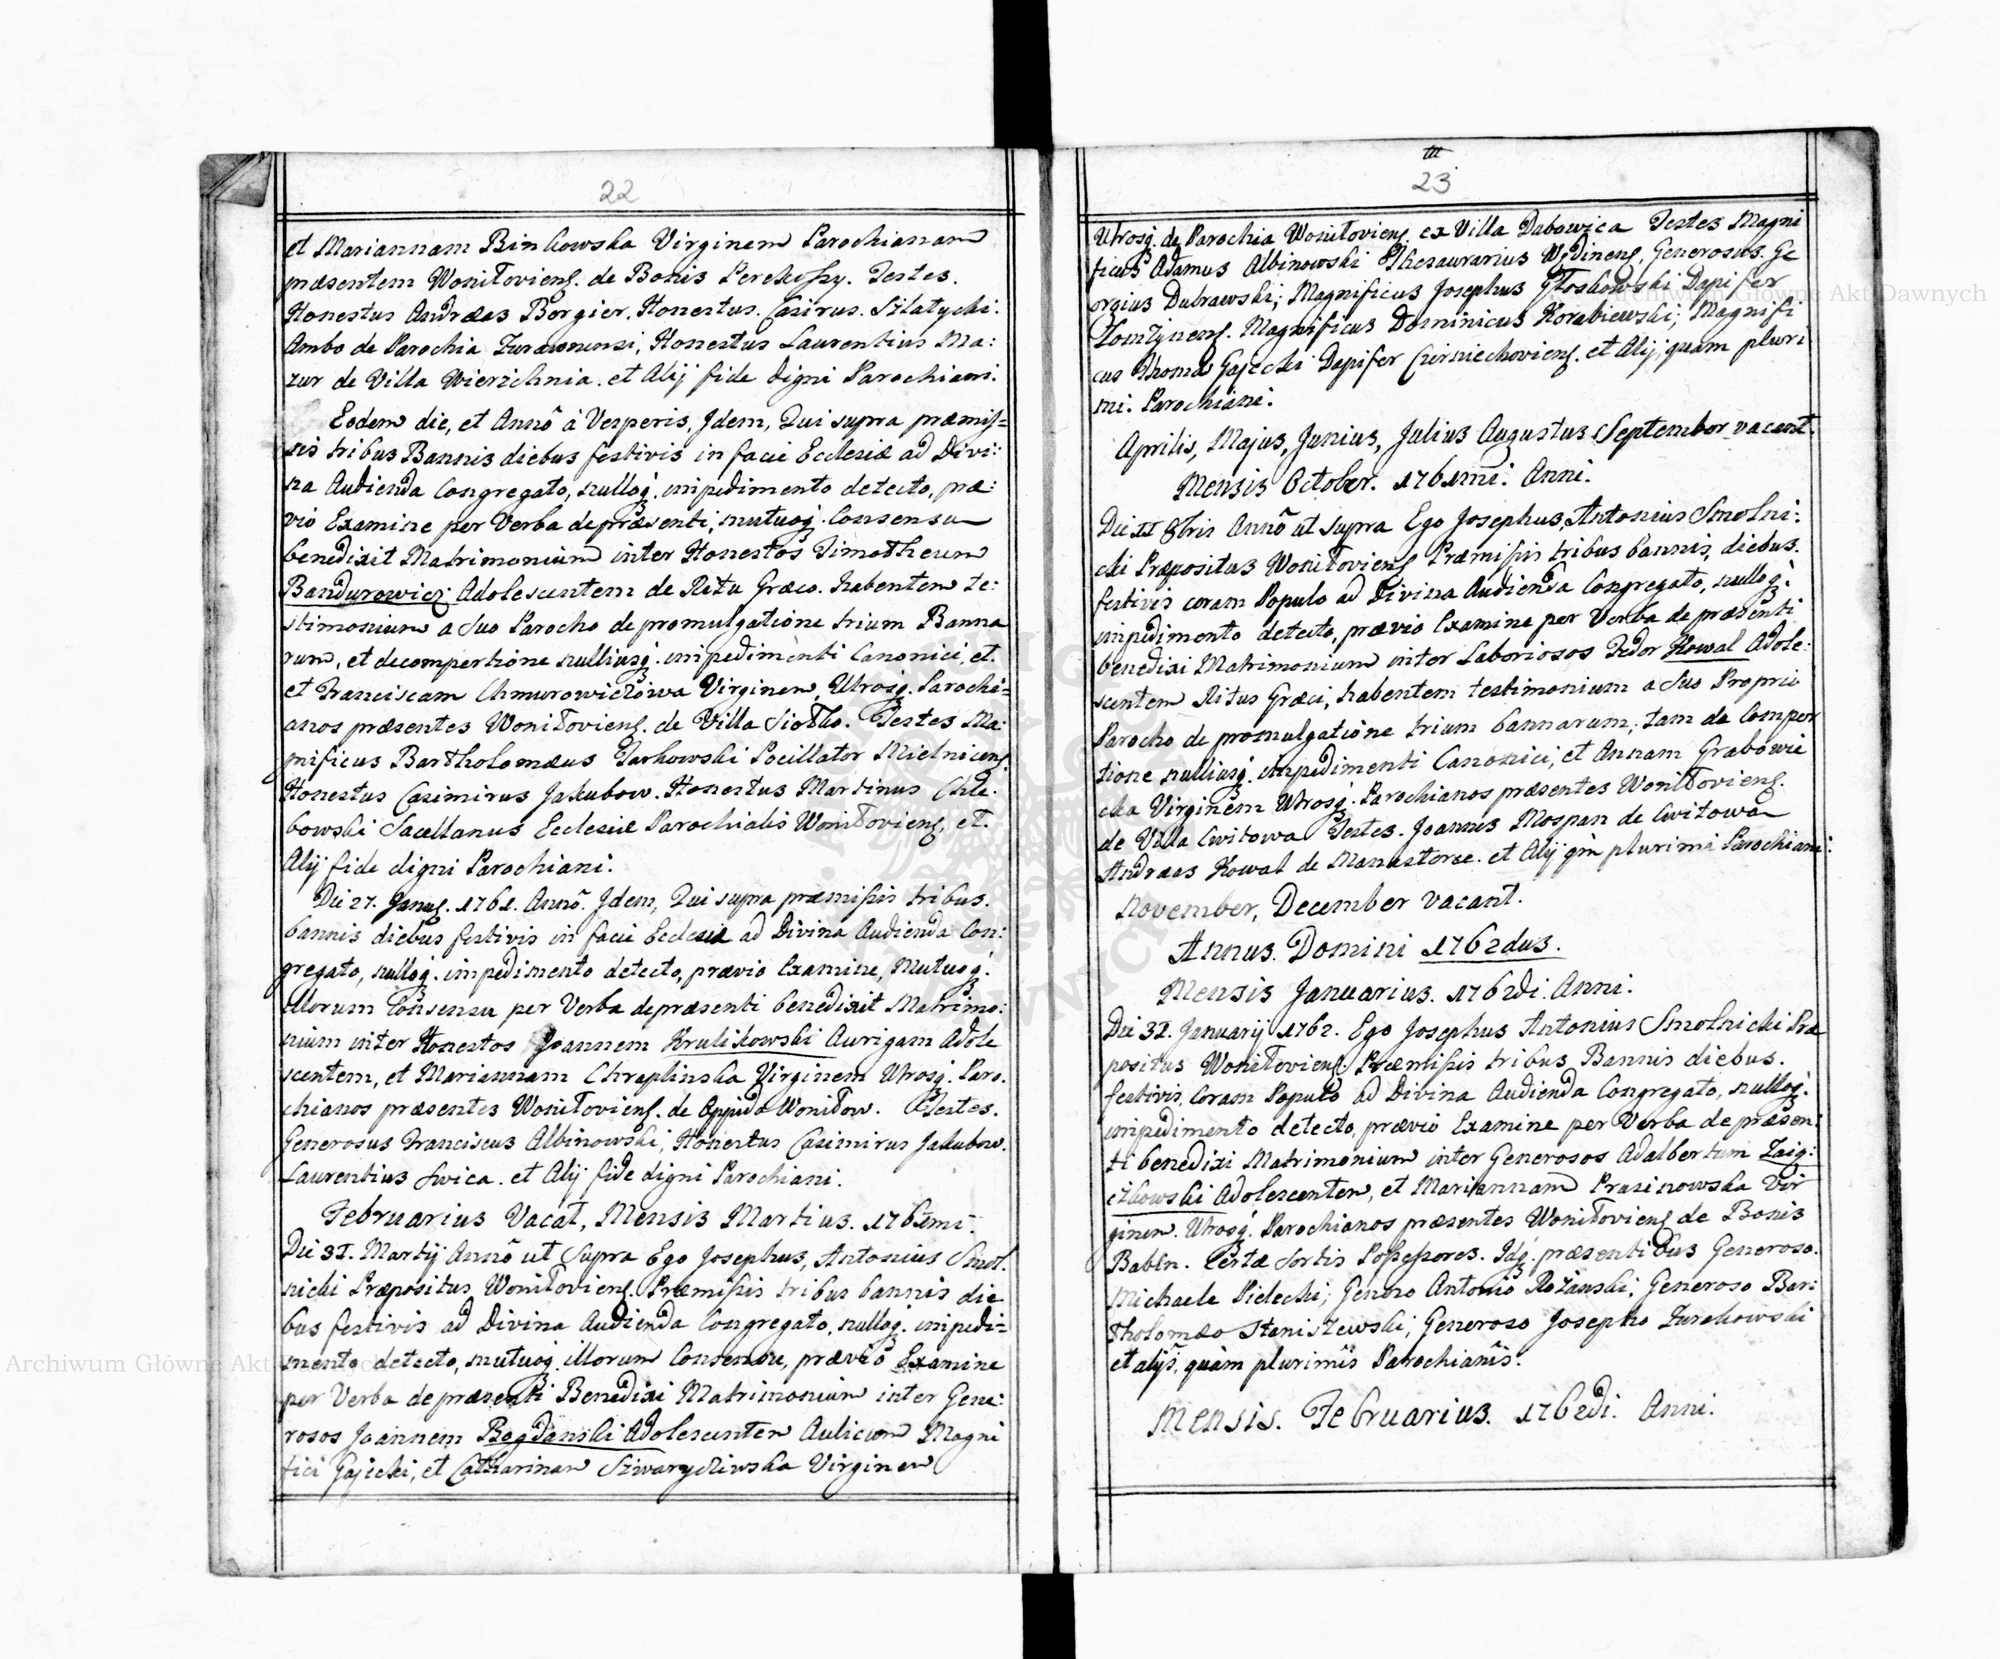 22
et Mariannam Binkowska Virginem Parochianam
præsentem Woniłoviens. de Bonis Perekossy. Testes.
Honestus Andræas Borgier. Honestus. Casirus. Szlatycki.
Ambo de Parochia Zurawnensi, Honestus Laurentius Ma:
zur de Villa Wierzchnia. et Alij fide digni Parochiani.
Eodem die, et Annô à Vesperis, Jdem, Qui supra præmis=
sis tribus Bannis diebus festivis in facie Ecclesiæ ad Divi:
na Audienda Congregato, nulloq. impedimento detecto, præ:
vio Examine per Verba de præsenti, mutuoq. Consensu
benedixit Matrimonium inter Honestos Timotheum
Bandurowicz Adolescentem de Ritu Græco. habentem te:
stimonium a suo Parocho de promulgatione trium Banna
rum, et de compertione nulliusq. impedimenti Canonici, et.
et Franciscam Chmurowiczowa Virginem, Utrosq. Parochi=
anos præsentes Woniłoviens. de Villa Siołko. Testes Ma:
gnificus Bartholomæus Tarkowski Pocillator Mielnicens.
Honestus Casimirus Jakubow. Honestus Martinus Chle.
bowski Sacellanus Ecclesiæ Parochialis Woniłoviens, et.
Alij fide digni Parochiani.
Die 27. Janu. 1761. Annô. Jdem, Qui supra præmissis tribus.
bannis diebus festivis in facie Ecclesiæ ad Divina Audienda Con:
gregato, nulloq. impedimento detecto, prævio Examine, Mutuoq.
illorum Consensu per Verba de præsenti benedixit Matrimo:
nium inter Honestos Joannem Krulikowski Aurigam Adole
scentem, et Mariannam Chraplinska Virginem Utrosq. Paro.
chianos præsentes Woniłoviens. de Oppido Woniłow. Testes.
Generosus Franciscus Albinowski, Honestus Casimirus Jakubow.
Laurentius Swica. et Alij fide digni Parochiani.
Februarius Vacat, Mensis Martius. 1761mi.
Die 31. Martij Annô ut Supra Ego Josephus, Antonius Smol.
nicki Præpositus Woniłoviens. Præmissis tribus bannis die
bus festivis ad Divina Audienda Congregato, nulloq. impedi=
mento detecto, mutuoq. illorum Consensu, prævio Examine
per Verba de præsenti Benedixi Matrimonium inter Gene:
rosos Joannem Bogdanski Adolescentem Aulicum Magni
fici Gajecki, et Catharinam Szwaryczewska Virginem
23
Utrosq. de Parochia Woniłoviens. ex Villa Dubowica Testes Magni
ficus Adamus Albinowski Thesaurarius Widinens, Generosus. Ge
orgius Dubrawski; Magnificus Josephus Głoskowski Dapifer
Łomzynens. Magnificus Dominicus Korabiewski; Magnifi
cus Thoma Gajecki Dapifer Czerniechoviens. et Alij, quam pluri
mi. Parochiani.
Aprilis, Majus, Junius, Julius Augustus September vacant.
Mensis October. 1761mi. Anni.
Die 11 8bris Annô ut supra Ego Josephus, Antonius Smolni:
cki Præpositus Woniłoviens Præmissis tribus bannis, diebus.
festivis coram Populo ad Divina Audienda Congregato, nulloq.
impedimento detecto, prævio Examine per Verba de præsenti
benedixi Matrimonium inter Laboriosos Fedor Kowal Adole:
scentem Ritus Græci, habentem testimonium a suo Proprio
Parocho de promulgatione trium bannarum, tam de Comper
tione nulliusq. impedimenti Canonici, et Annam Grabowie
cka Virginem Utrosq. Parochianos præsentes Woniłoviens.
de Villa Cwitowa Testes. Joannes Mospan de Cwitowa
Andræas Kowal de Manasterze. et Alij qm plurimi Parochiani.
November, December vacant.
Annus. Domini 1762dus.
Mensis Januarius. 1762di. Anni.
Die 31. Januarij 1762. Ego Josephus Antonius Smolnicki Præ
positus Woniłoviens. Præmissis tribus Bannis diebus.
festivis, Coram Populo ad Divina Audienda Congregato, nulloq.
impedimento detecto, prævio Examine per Verba de præsen:
ti benedixi Matrimonium inter Generosos Adalbertum Zaig:
czkowski Adolescentem, et Mariannam Prasinowska Vir
ginem. Utrosq. Parochianos præsentes Woniłoviens de Bonis
Babin. Certæ Sortis Possessores. Jdq. præsentibus Generoso.
Michaele Pielecki; Genoro Antonio Rozanski; Generoso Bar:
tholomæo Staniszewski; Generoso Josepho Zurakowski
et alijs, quàm plurimis Parochianis.
Mensis. Februarius. 1762di. Anni.
Archiwum Główne Akt Dawnych